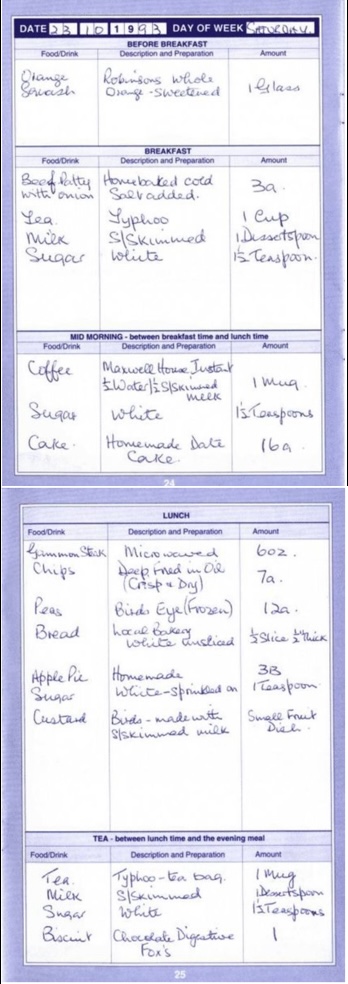 DATE 23 10 1993 DAY OF WEEK SATURDAY.
BEFORE BREAKFAST
Food/Drink Description and Preparation Amount
Orange Robinsons Whole 1 Glass
Squash Orange - Sweetened
BREAKFAST
Food/Drink Description and Preparation Amount
Beef Patty Homebaked cold 3a.
with onion Salt added.
Tea. Typhoo 1 Cup
Milk S/Skimmed 1 Dessertspoon
Sugar White 1½ Teaspoon.
MID MORNING - between breakfast time and lunch time
Food/Drink Description and Preparation Amount
Coffee Maxwell House Instant
½ Water/½ S/Skimmed 1 Mug.
Milk
Sugar White 1½ Teaspoons
Cake. Homemade Date 16a.
Cake.
24
LUNCH
Food/Drink Description and Preparation Amount
Gammon Steak Microwaved 6oz.
Chips Deep Fried in Oil 7a.
(Crisp & Dry)
Peas Birds Eye (Frozen) 12a.
Bread Local Bakery ½ Slice ½" Thick
White unsliced
Apple Pie Homemade 3B
Sugar White - Sprinkled on 1 Teaspoon
Custard Birds - made with Small Fruit
S/Skimmed milk Dish.
TEA - between lunch time and the evening meal
Food/Drink Description and Preparation Amount
Tea. Typhoo - tea bag. 1 Mug
Milk S/Skimmed 1 Dessertspoon
Sugar White 1½ Teaspoons
Biscuit Chocolate Digestive 1
Fox's
25